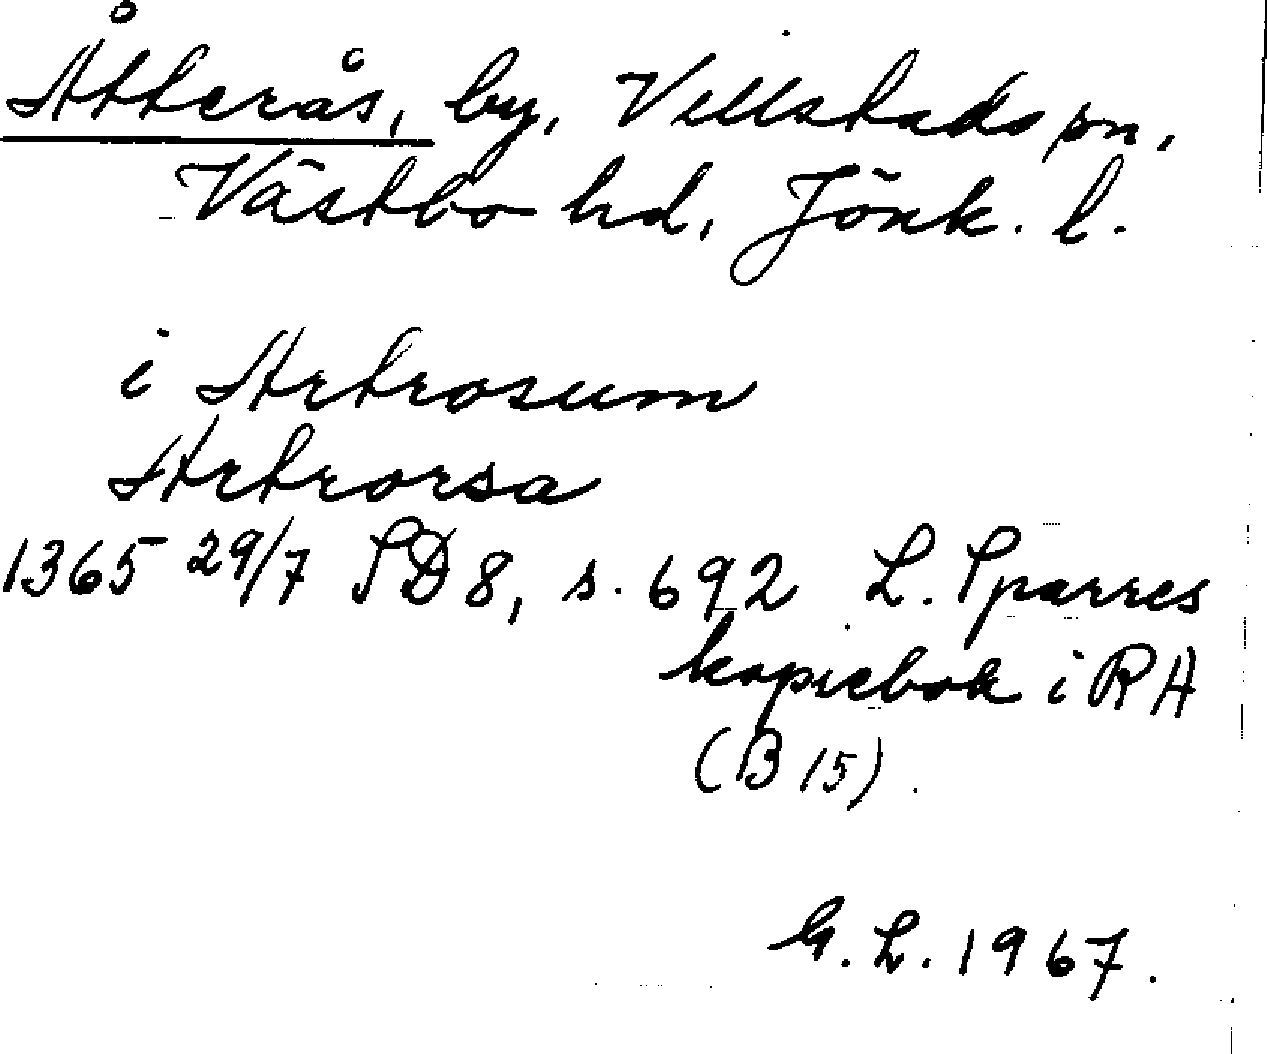 Åtterås, by, Villstads pn,
Västbo hd, Jönk. l.
i Artrosum
Artrorsa
1365 29/7 SD 8, s. 692 L. Sparres
kopiebok i RA
(B 15).
G. L. 1967.